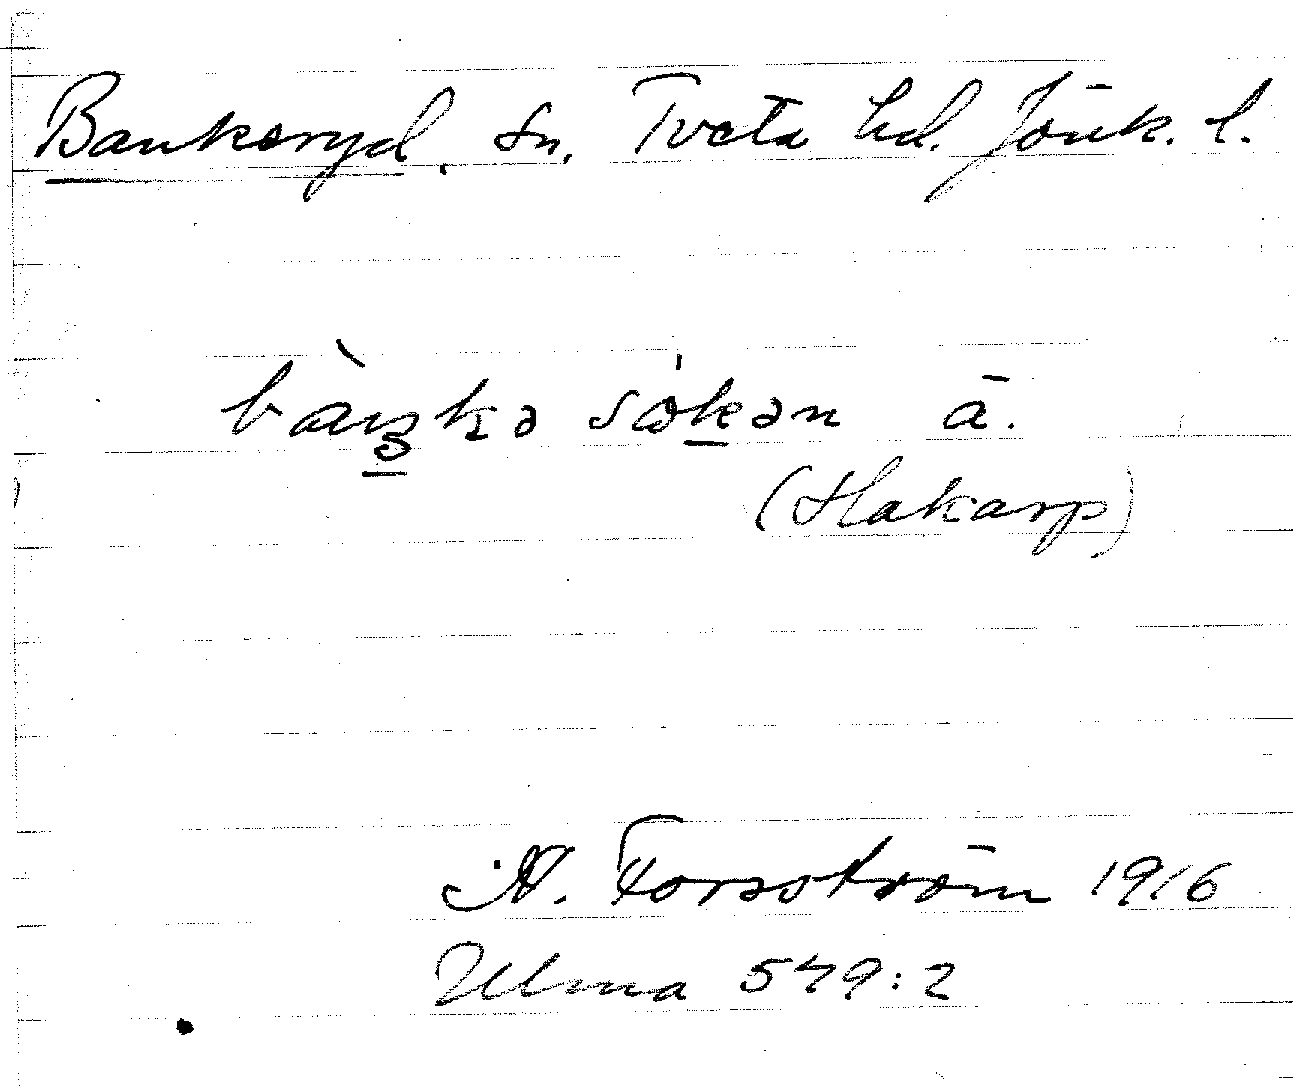 Bankeryd. sn. Tveta hd. Jönk. l.
ā.
(Hakarp)
N. Forsström 1916
Ulma 579:2